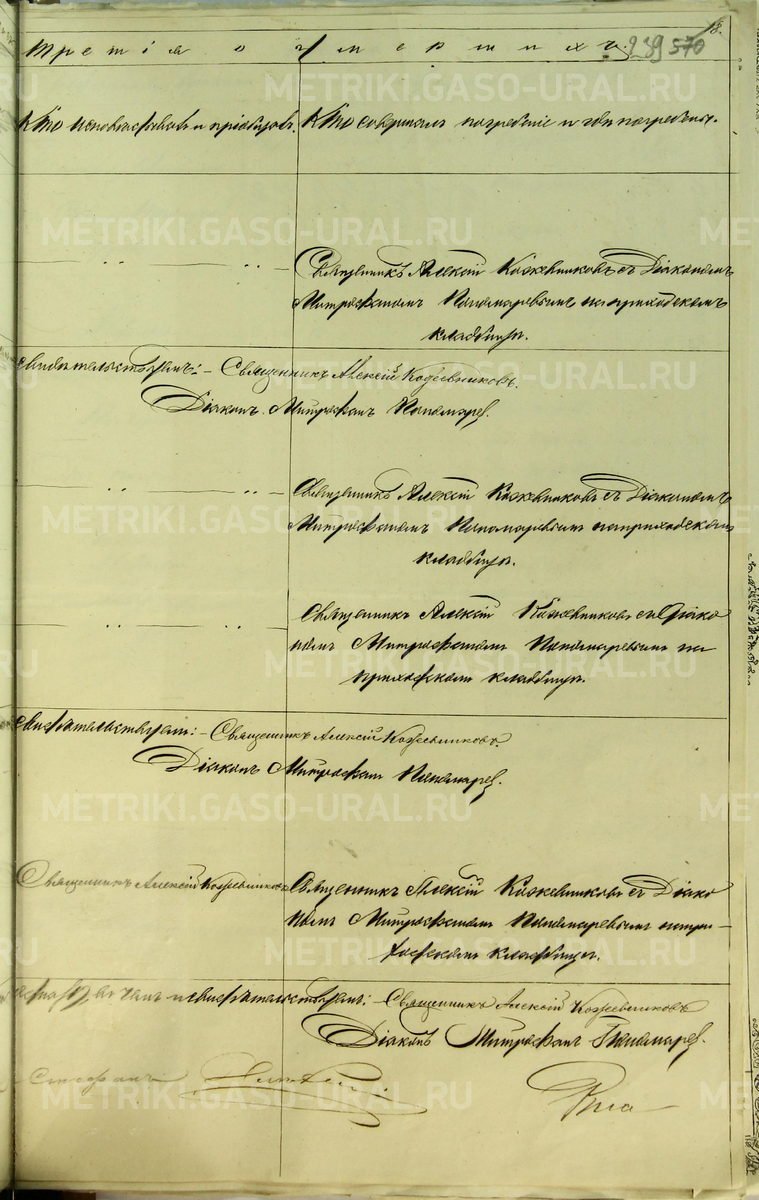 18.
третія о умершихъ. 239 570
Кто исповѣдывалъ и пріобщалъ. Кто совершалъ погребеніе и гдѣ погребены.
Священникъ Алексій Кожевниковъ съ Діакономъ
Митрофаномъ Пономаревымъ на приходскомъ
кладбищѣ.
свидѣтельствуемъ: – Священникъ Алексій Кожевниковъ.
Діаконъ Митрофанъ Пономарев.
Священникъ Алексій Кожевниковъ съ Діакономъ
Митрофаномъ Пономаревымъ на приходскомъ
кладбищѣ.
Священникъ Алексій Кожевниковъ съ Діако
номъ Митрофаномъ Пономаревымъ на
приходскомъ кладбищѣ.
свидѣтельствуемъ: – Священникъ Алексій Кожевниковъ.
Діаконъ Митрофанъ Пономарев.
Священникъ Алексій Кожевниковъ Священникъ Алексій Кожевниковъ съ Діако
номъ Митрофаномъ Пономаревымъ на при–
ходскомъ кладбищѣ.
и свидѣтельствуемъ: – Священникъ Алексій Кожевниковъ
Діаконъ Митрофанъ Пономарев.
Стефанъ
METRIKI.GASO-URAL.RU